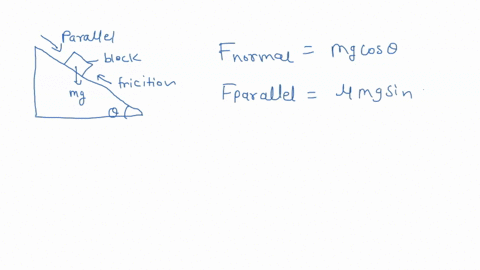 Parallel
block
fricition
mg
θ
Fnormal = mgcosθ
Fparallel = μmgsin